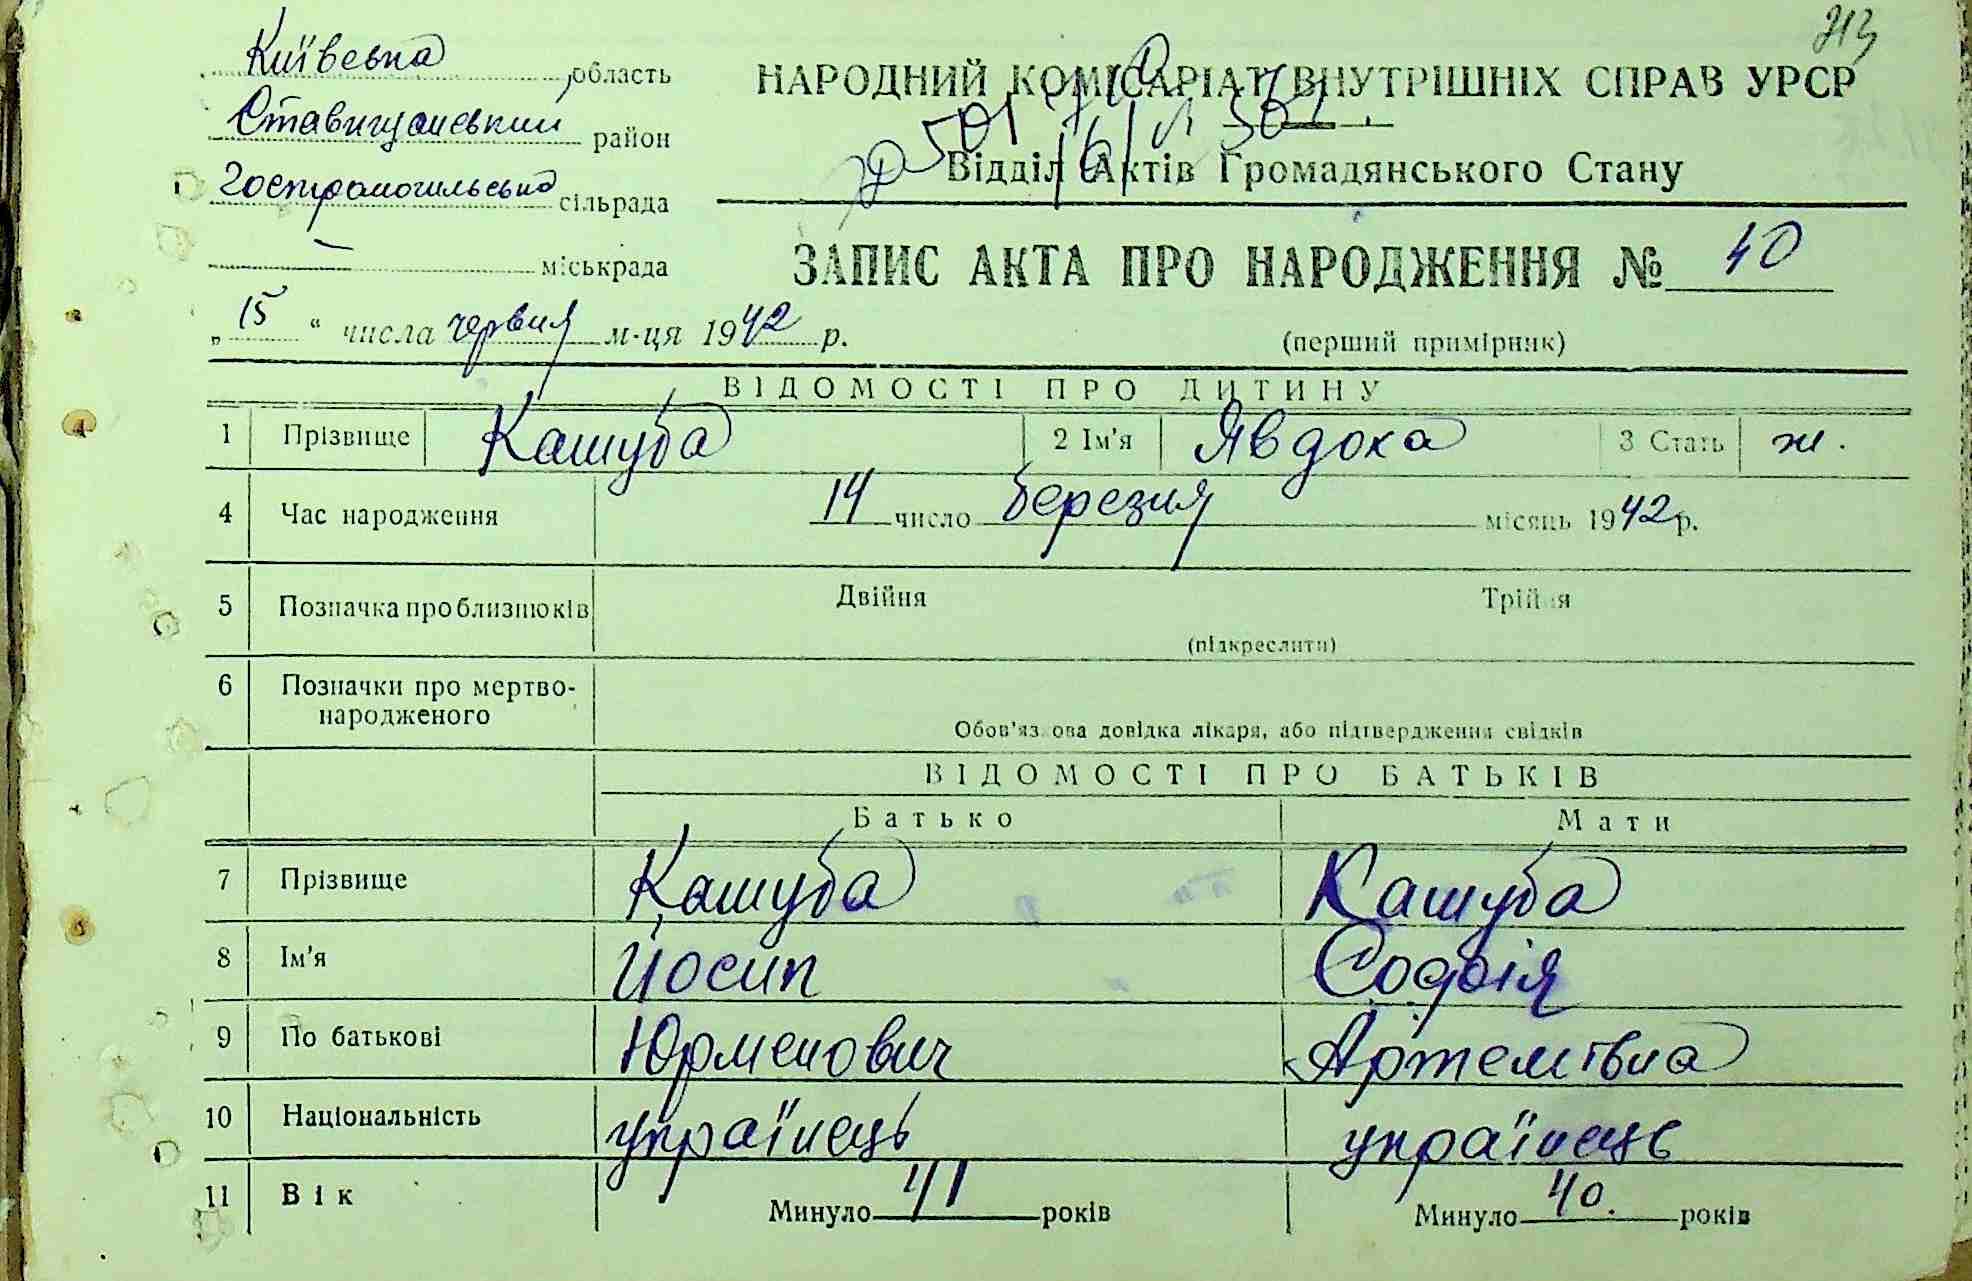 213
Київська область
Ставищанський район
Гострамогильська сільрада
— міськрада
НАРОДНИЙ КОМІСАРІАТ ВНУТРІШНІХ СПРАВ УРСР
Відділ Актів Громадянського Стану
ЗАПИС АКТА ПРО НАРОДЖЕННЯ № 40
„ 15 “ числа червня м-ця 1942 р.
(перший примірник)
ВІДОМОСТІ ПРО ДИТИНУ
1 Прізвище Кашуба 2 Ім'я Явдоха 3 Стать ж.
4 Час народження 14 число березня місяць 1942 р.
5 Позначка про близнюків Двійня Трійня
(підкреслити)
6 Позначки про мертво-
народженого
Обов'язкова довідка лікаря, або підтвердження свідків
ВІДОМОСТІ ПРО БАТЬКІВ
Батько Мати
7 Прізвище Кашуба Кашуба
8 Ім'я Йосип Софія
9 По батькові Юрменович Артемівна
10 Національність українець українець
11 Вік Минуло 41 років Минуло 40. років